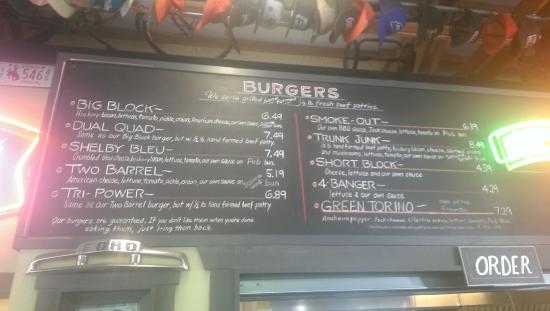 546
BURGERS
We serve grilled 1/3 lb fresh beef patties.
BIG BLOCK— 6.49
Hickory bacon, lettuce, tomato, pickle, onion, American cheese, our own sauce on
DUAL QUAD— 7.49
Same as our Big Block burger, but w/ 1/2 lb hand formed beef patty.
SHELBY BLEU— 7.49
Crumbled bleu cheese, hickory bacon, lettuce, tomato, our own sauce on Pub bun.
TWO BARREL— 5.19
American cheese, lettuce, tomato, pickle, onion, our own sauce on bun
TRI-POWER— 6.89
Same as our Two Barrel burger, but w/ 1/2 lb hand formed beef patty.
Our burgers are guaranteed. If you don't like them when you're done
eating them, just bring them back.
SMOKE-OUT— 6.19
Our own BBQ sauce, Jack cheese, lettuce, tomato on Pub bun.
TRUNK JUNK— 8.49
1/2 lb hand formed beef patty, hickory bacon, cheese,
and mushrooms, lettuce, tomato, our own sauce on
SHORT BLOCK— 4.59
Cheese, lettuce and our own sauce
4-BANGER— 4.29
lettuce & our own sauce
GREEN TORINO— 7.29
Anaheim pepper,
FORD
ORDER